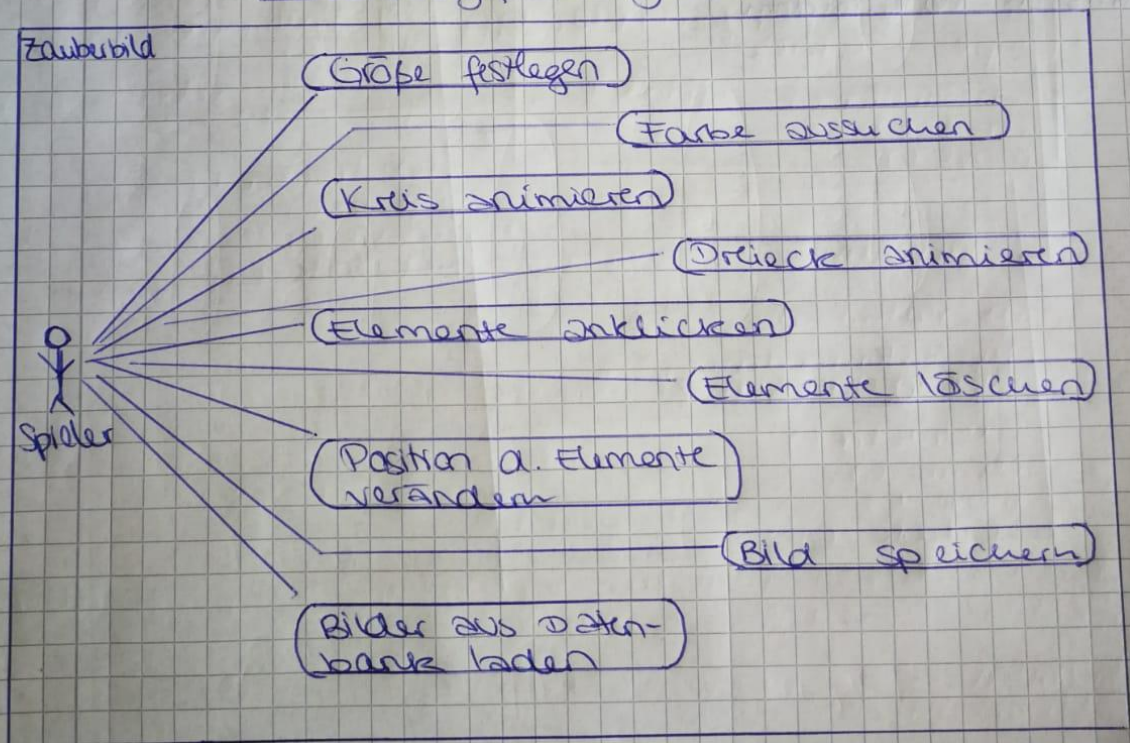 Zauberbild
Größe festlegen
Farbe aussuchen
Kreis animieren
Dreieck animieren
Elemente anklicken
Elemente löschen
Spieler
Position d. Elemente
verändern
Bild speichern
Bilder aus Daten-
bank laden